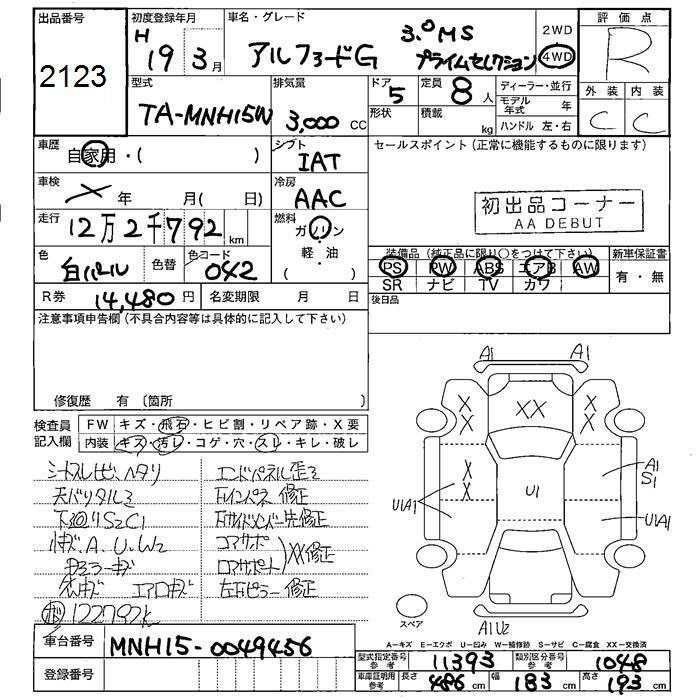 出品番号
2123
初度登録年月
H 19 3月
車名・グレード
アルファードG 3.0MS
プライムセレクション
2WD
4WD
評価点
R
外装 内装
C C
型式
TA-MNH15W
排気量
3,000 CC
ドア 5
形状
定員 8人
積載 kg
ディーラー・並行
モデル年式 年
ハンドル 左・右
車歴 自家用・( )
シフト IAT
セールスポイント (正常に機能するものに限ります)
車検 年 月( 日)
冷房 AAC
初出品コーナー
AA DEBUT
走行 12万2千792 km
燃料 ガソリン
・軽・油
( )
色 白パール
色替
色コード 042
装備品 (純正品に限り○をつけて下さい)
PS PW ABS エアB AW
SR ナビ TV カワ
新車保証書
有・無
R券 14,480円
名変期限 月 日
後日品
注意事項申告欄 (不具合内容等は具体的に記入して下さい)
修復歴 有 〔箇所 〕
検査員記入欄
FW キズ・飛石・ヒビ割・リペア跡・X要
内装 キズ・汚レ・コゲ・穴・スレ・キレ・破レ
シートスレ ヘタリ
下廻りS2C1
A、U、W2
122792k
エンドパネル歪2
右インパネ 修正
右サイドメンバー先修正
コアサポ
ロアサポート
XX修正
左右ピラー修正
A1 A1
X X
XX
X X
X X
A1
S1
U1A1
U1
U1A1
スペア
A1U2
A-キズ E-エクボ U-凹み W-補修跡 S-サビ C-腐食 XX-交換済
車台番号 MNH15-0049456
登録番号
型式指定番号 参考 11393
類別区分番号 参考 1048
車庫証明用 参考 長さ 486 cm 幅 183 cm 高さ 193 cm